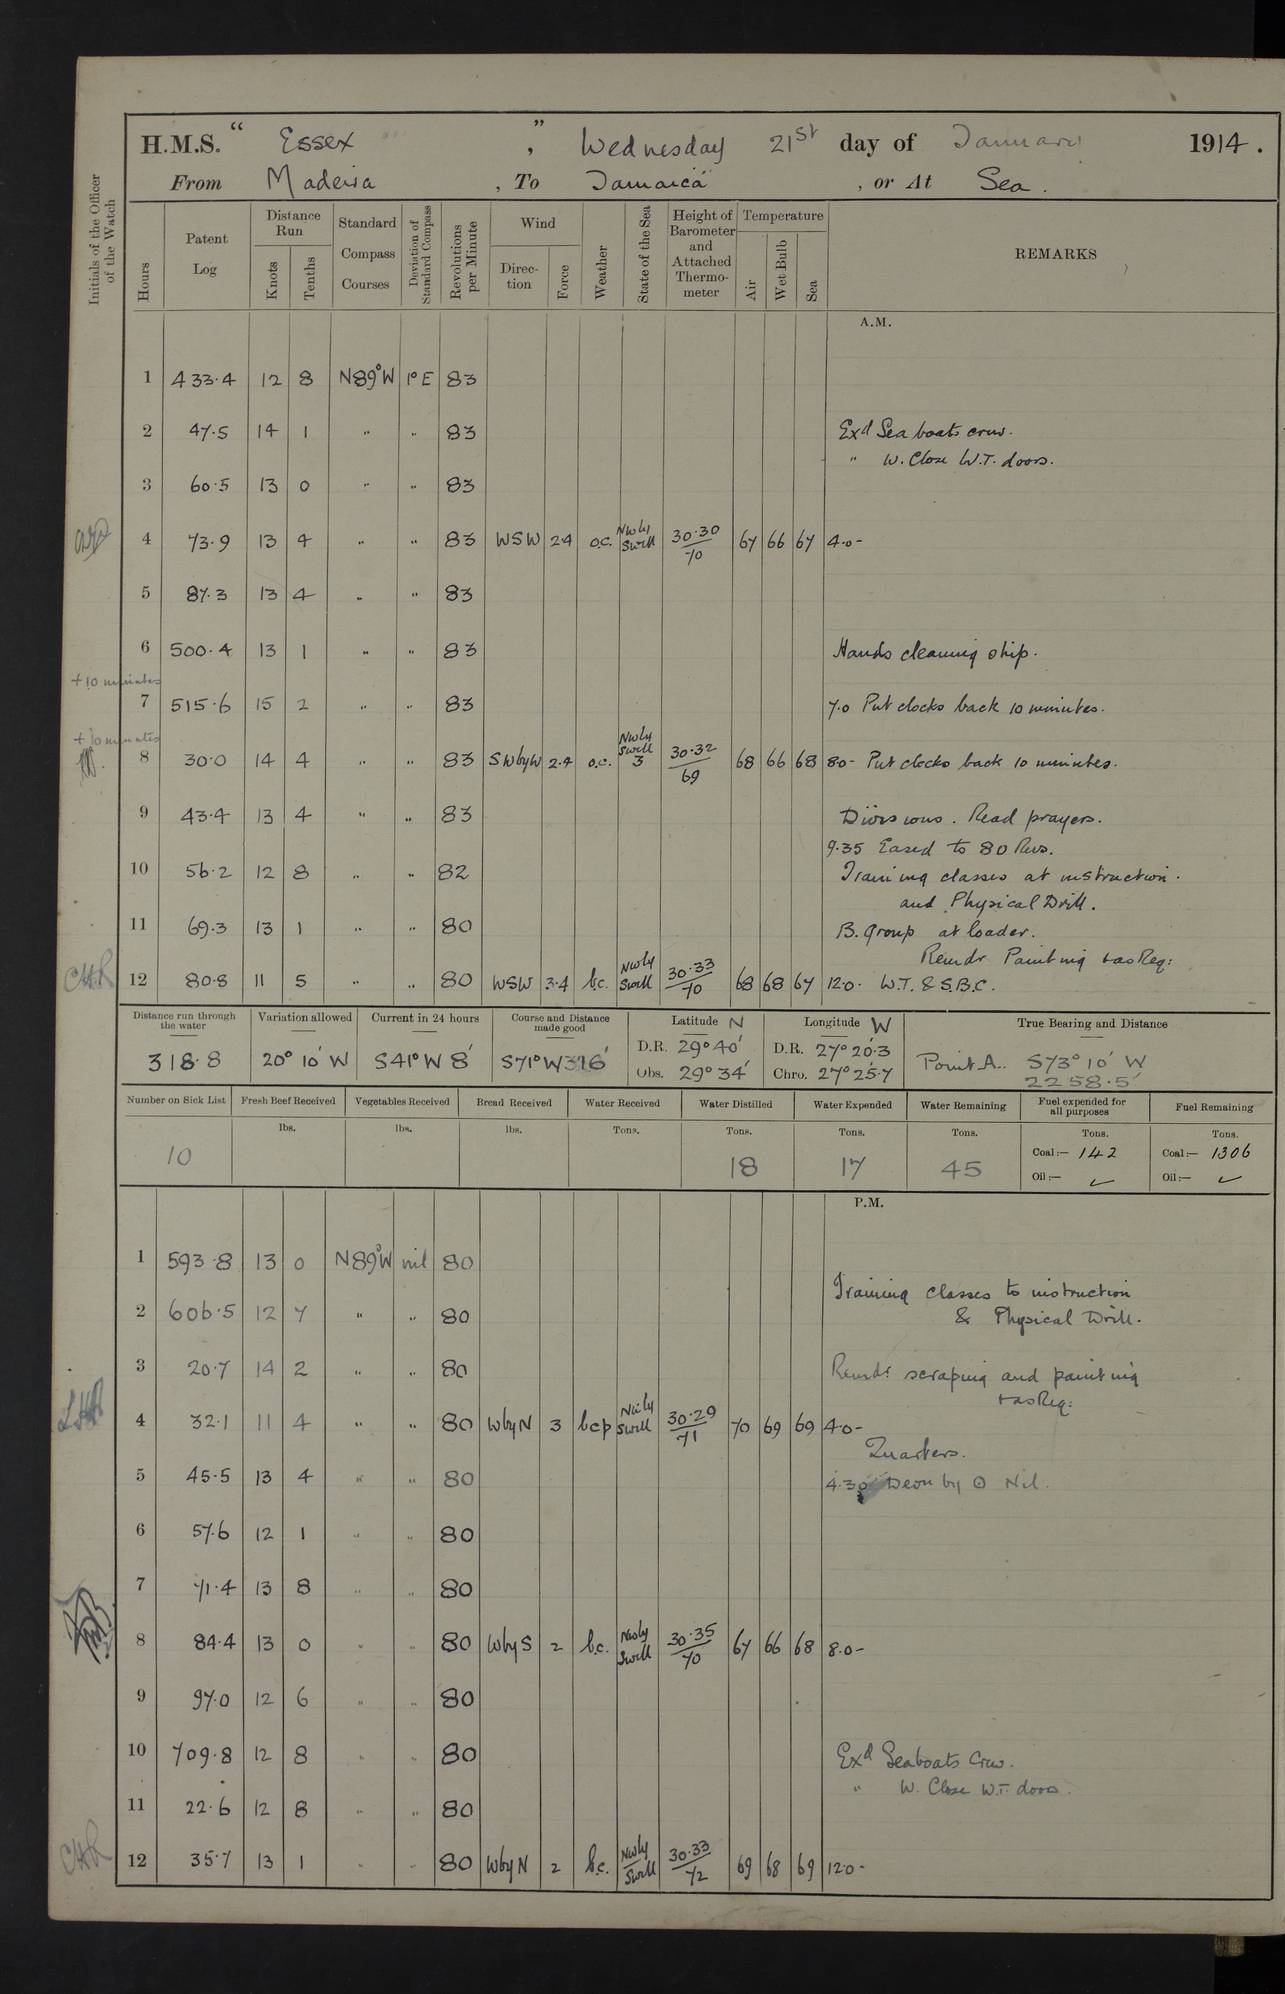 H.M.S. " Essex " , Wednesday 21st day of January 1914.
From Madeira , To Jamaica , or At Sea.
Initials of the Officer of the Watch
Hours
Patent Log
Distance Run
Knots
Tenths
Standard Compass Courses
Deviation of Standard Compass
Revolutions per Minute
Wind
Direction
Force
Weather
State of the Sea
Height of Barometer and Attached Thermometer
Temperature
Air
Wet Bulb
Sea
REMARKS
A.M.
1 433.4 12 8 N89°W 1°E 83
2 47.5 14 1 " " 83 Exd Sea boats crew.
" W. Close W.T. doors.
3 60.5 13 0 " " 83
4 73.9 13 4 " " 83 WSW 2.4 o.c. Nwly Swell 30.30/70 67 66 67 4.0-
5 87.3 13 4 " " 83
6 500.4 13 1 " " 83 Hands cleaning ship.
+10 minutes
7 515.6 15 2 " " 83 7.0 Put clocks back 10 minutes.
+10 minutes
8 30.0 14 4 " " 83 SWbyW 2.4 o.c. Nwly Swell 3 30.32/69 68 66 68 80- Put clocks back 10 minutes.
9 43.4 13 4 " " 83 Divisions. Read prayers.
9.35 Eased to 80 Revs.
10 56.2 12 8 " " 82 Training classes at instruction.
and Physical Drill.
11 69.3 13 1 " " 80 B. Group at loader.
Remdr Painting & as Req:
12 80.8 11 5 " " 80 WSW 3.4 b.c. Nwly Swell 30.33/70 68 68 67 12.0. W.T. & S.B.C.
Distance run through the water
318.8
Variation allowed
20° 10' W
Current in 24 hours
S41°W 8'
Course and Distance made good
S71°W 316'
Latitude N
D.R. 29° 40'
Obs. 29° 34'
Longitude W
D.R. 27° 20'.3
Chro. 27° 25'.7
True Bearing and Distance
Point A.. S73° 10' W
2258.5'
Number on Sick List
10
Fresh Beef Received
lbs.
Vegetables Received
lbs.
Bread Received
lbs.
Water Received
Tons.
Water Distilled
Tons.
18
Water Expended
Tons.
17
Water Remaining
Tons.
45
Fuel expended for all purposes
Tons.
Coal:— 142
Oil:— ✓
Fuel Remaining
Tons.
Coal:— 1306
Oil:— ✓
P.M.
1 593.8 13 0 N89°W nil 80
Training classes to instruction
2 606.5 12 7 " " 80 & Physical Drill.
3 20.7 14 2 " " 80 Remdr scraping and painting
& as Req:
4 32.1 11 4 " " 80 WbyN 3 bcp Nwly Swell 30.29/71 70 69 69 4.0-
Quarters.
5 45.5 13 4 " " 80 4.30 Devn by ⊙ Nil.
6 57.6 12 1 " " 80
7 71.4 13 8 " " 80
8 84.4 13 0 " " 80 WbyS 2 b.c. Nwly Swell 30.35/70 67 66 68 8.0-
9 97.0 12 6 " " 80
10 709.8 12 8 " " 80 Exd Seaboats Crew.
" W. Close W.T. doors.
11 22.6 12 8 " " 80
12 35.7 13 1 " " 80 WbyN 2 b.c. Nwly Swell 30.33/72 69 68 69 12.0-